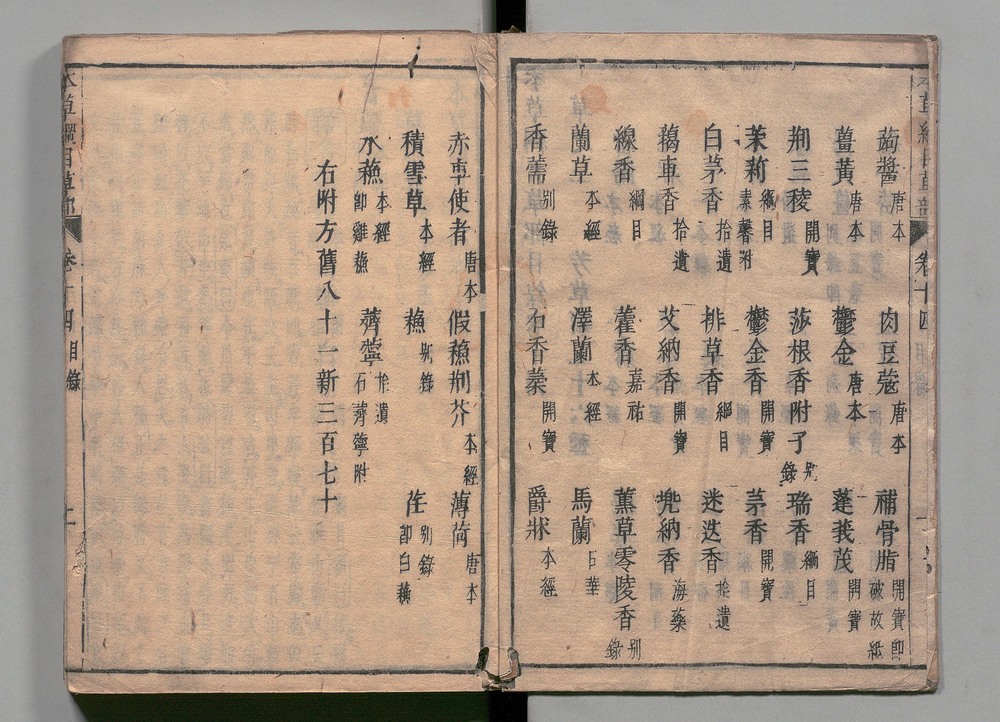 蒟醬 唐本 肉豆蔻 唐本 補骨脂 開寶 即破故紙
薑黃 唐本 鬱金 唐本 蓬莪茂 開寶
荆三稜 開寶 莎根香附子 别錄 瑞香 綱目
茉莉 綱目 素馨附 鬱金香 開寶 茅香 開寶
白茅香 拾遺 排草香 綱目 迷迭香 拾遺
藒車香 拾遺 艾納香 開寶 兜納香 海藥
線香 綱目 藿香 嘉祐 薰草零陵香 别錄
蘭草 本經 澤蘭 本經 馬蘭 日華
香薷 别錄 石香葇 開寶 爵牀 本經
赤車使者 唐本 假蘇荆芥 本經 薄荷 唐本
積雪草 本經 蘇 别錄 荏 别錄 即白蘇
水蘇 本經 即雞蘇 薺薴 拾遺 石薺薴附
右附方舊八十一新三百七十
本草綱目草部 卷十四目錄